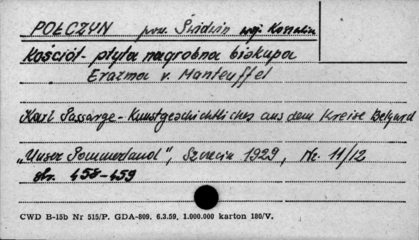 POŁCZYN pow. Świdwin woj. Koszalin
Kościół - płyta nagrobna biskupa
Erazma v. Manteuffel
Karl Passarge - Kunstgeschichtliches aus dem Kreise Belgard
„Unser Pommerland", Szczecin 1929, Nr. 11/12
str. 458-459
CWD B-15b Nr 515/P. GDA-809. 6.3.59. 1.000.000 karton 180/V.